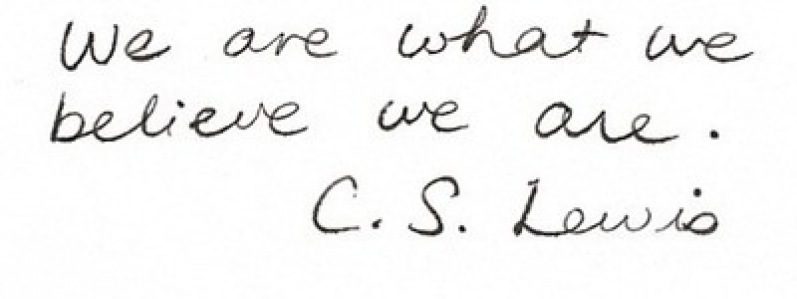 We are what we
believe we are.
C. S. Lewis